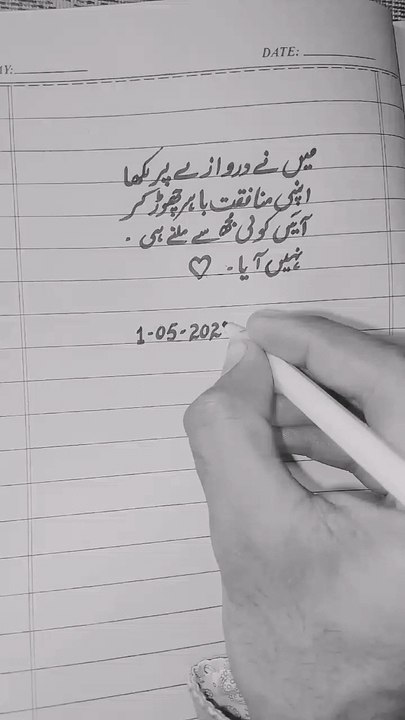 DATE:
میں نے دروازے پر لکھا
اپنی منافقت باہر چھوڑ کر
آئیں کوئی مجھ سے ملنے ہی .
نہیں آیا . ♡
1-05-202